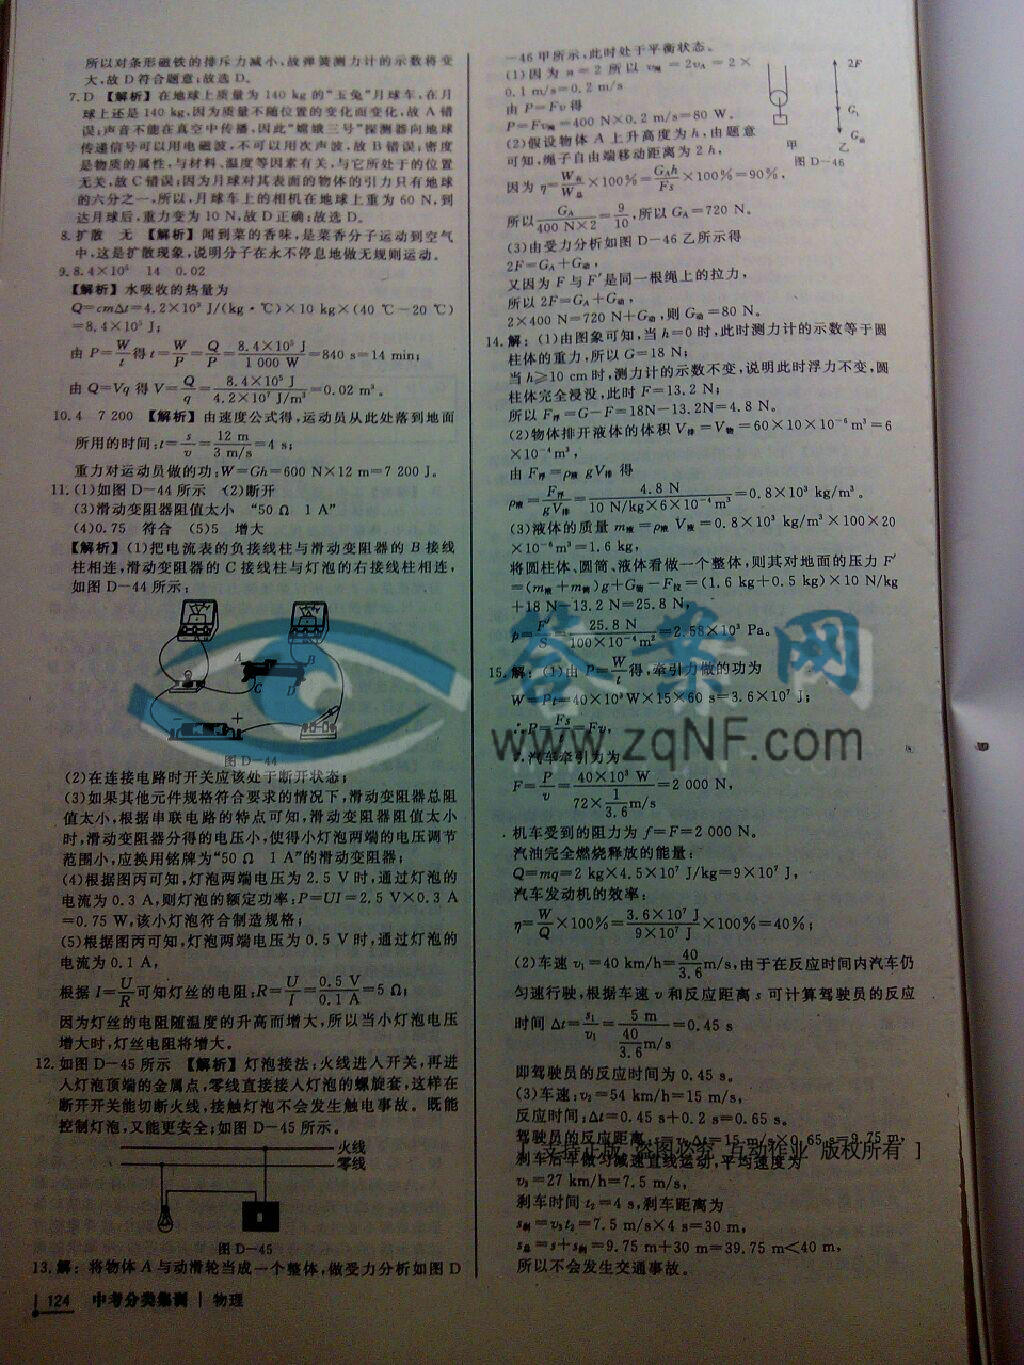 所以对条形磁铁的排斥力减小,故弹簧测力计的示数将变
大,故D符合题意;故选D。
7.D 【解析】在地球上质量为140 kg的“玉兔”月球车,在月
球上还是140 kg,因为质量不随位置的变化而变化,故A错
误;声音不能在真空中传播,因此“嫦娥三号”探测器向地球
传递信号可以用电磁波,不可以用次声波,故B错误;密度
是物质的属性,与材料、温度等因素有关,与它所处于的位置
无关,故C错误;因为月球对其表面的物体的引力只有地球
的六分之一,所以,月球车上的相机在地球上重为60 N,到
达月球后,重力变为10 N,故D正确;故选D。
8.扩散 无 【解析】闻到菜的香味,是菜香分子运动到空气
中,这是扩散现象,说明分子在永不停息地做无规则运动。
9.8.4×10⁵ 14 0.02
【解析】水吸收的热量为
Q=cmΔt=4.2×10³ J/(kg·℃)×10 kg×(40 ℃-20 ℃)
=8.4×10⁵ J;
由 P=W/t得 t=W/P=Q/P=8.4×10⁵ J/1 000 W=840 s=14 min;
由 Q=Vq 得 V=Q/q=8.4×10⁵ J/4.2×10⁷ J/m³=0.02 m³。
10.4 7 200 【解析】由速度公式得,运动员从此处落到地面
所用的时间:t=s/v=12 m/3 m/s=4 s;
重力对运动员做的功:W=Gh=600 N×12 m=7 200 J。
11.(1)如图D-44所示 (2)断开
(3)滑动变阻器阻值太小 “50 Ω 1 A”
(4)0.75 符合 (5)5 增大
【解析】(1)把电流表的负接线柱与滑动变阻器的B接线
柱相连,滑动变阻器的C接线柱与灯泡的右接线柱相连,
如图D-44所示;
A
B
C
D
- +
图D-44
(2)在连接电路时开关应该处于断开状态;
(3)如果其他元件规格符合要求的情况下,滑动变阻器总阻
值太小,根据串联电路的特点可知,滑动变阻器阻值太小
时,滑动变阻器分得的电压小,使得小灯泡两端的电压调节
范围小,应换用铭牌为“50 Ω 1 A”的滑动变阻器;
(4)根据图丙可知,灯泡两端电压为2.5 V时,通过灯泡的
电流为0.3 A,则灯泡的额定功率:P=UI=2.5 V×0.3 A
=0.75 W,该小灯泡符合制造规格;
(5)根据图丙可知,灯泡两端电压为0.5 V时,通过灯泡的
电流为0.1 A,
根据 I=U/R可知灯丝的电阻:R=U/I=0.5 V/0.1 A=5 Ω;
因为灯丝的电阻随温度的升高而增大,所以当小灯泡电压
增大时,灯丝电阻将增大。
12.如图D-45所示 【解析】灯泡接法:火线进入开关,再进
入灯泡顶端的金属点,零线直接接入灯泡的螺旋套,这样在
断开开关能切断火线,接触灯泡不会发生触电事故。既能
控制灯泡,又能更安全;如图D-45所示。
火线
零线
图D-45
13.解:将物体A与动滑轮当成一个整体,做受力分析如图D
124 中考分类集训 | 物理
-46甲所示,此时处于平衡状态。
(1)因为 n=2 所以 v绳=2vA=2×
0.1 m/s=0.2 m/s
由 P=Fv得
P=Fv绳=400 N×0.2 m/s=80 W。
(2)假设物体A上升高度为h,由题意
可知,绳子自由端移动距离为2h,
因为 η=W有/W总×100%=GAh/Fs×100%=90%,
所以GA/400 N×2=9/10,所以GA=720 N。
(3)由受力分析如图D-46乙所示得
2F=GA+G动,
又因为F与F′是同一根绳上的拉力,
所以2F=GA+G动,
2×400 N=720 N+G动,则G动=80 N。
2F
G动
甲 乙
图D-46
14.解:(1)由图象可知,当h=0时,此时测力计的示数等于圆
柱体的重力,所以G=18 N;
当h≥10 cm时,测力计的示数不变,说明此时浮力不变,圆
柱体完全浸没,此时F=13.2 N;
所以F浮=G-F=18N-13.2N=4.8 N。
(2)物体排开液体的体积V排=V物=60×10×10⁻⁶m³=6
×10⁻⁴m³,
由 F浮=ρ液 gV排 得
ρ液=F浮/gV排=4.8 N/10 N/kg×6×10⁻⁴m³=0.8×10³ kg/m³。
(3)液体的质量 m液=ρ液 V液=0.8×10³ kg/m³×100×20
×10⁻⁶m³=1.6 kg,
将圆柱体、圆筒、液体看做一个整体,则其对地面的压力F′
=(m液+m筒)g+G物-F拉=(1.6 kg+0.5 kg)×10 N/kg
+18 N-13.2 N=25.8 N,
p=F′/S=25.8 N/100×10⁻⁴m²=2.58×10³ Pa。
15.解:(1)由 P=W/t得,牵引力做的功为
W=Pt=40×10³W×15×60 s=3.6×10⁷ J;
∵P=Fs/t=Fv,
∴汽车牵引力为
F=P/v=40×10³ W/72×1/3.6m/s=2 000 N,
机车受到的阻力为 f=F=2 000 N。
汽油完全燃烧释放的能量:
Q=mq=2 kg×4.5×10⁷ J/kg=9×10⁷ J,
汽车发动机的效率:
η=W/Q×100%=3.6×10⁷ J/9×10⁷ J×100%=40%;
(2)车速 v₁=40 km/h=40/3.6m/s,由于在反应时间内汽车仍
匀速行驶,根据车速v和反应距离s可计算驾驶员的反应
时间 Δt=s₁/v₁=5 m/40/3.6m/s=0.45 s
即驾驶员的反应时间为0.45 s。
(3)车速:v₂=54 km/h=15 m/s,
反应时间:Δt=0.45 s+0.2 s=0.65 s。
驾驶员的反应距离
刹车后车做匀减速直线运动,平均速度为
v₃=27 km/h=7.5 m/s,
刹车时间 t₂=4 s,刹车距离为
s刹=v₃t₂=7.5 m/s×4 s=30 m,
s总=s+s刹=9.75 m+30 m=39.75 m<40 m,
所以不会发生交通事故。
答案网
www.zqNF.com
支持正版 盗图必究 互动作业 版权所有 ]